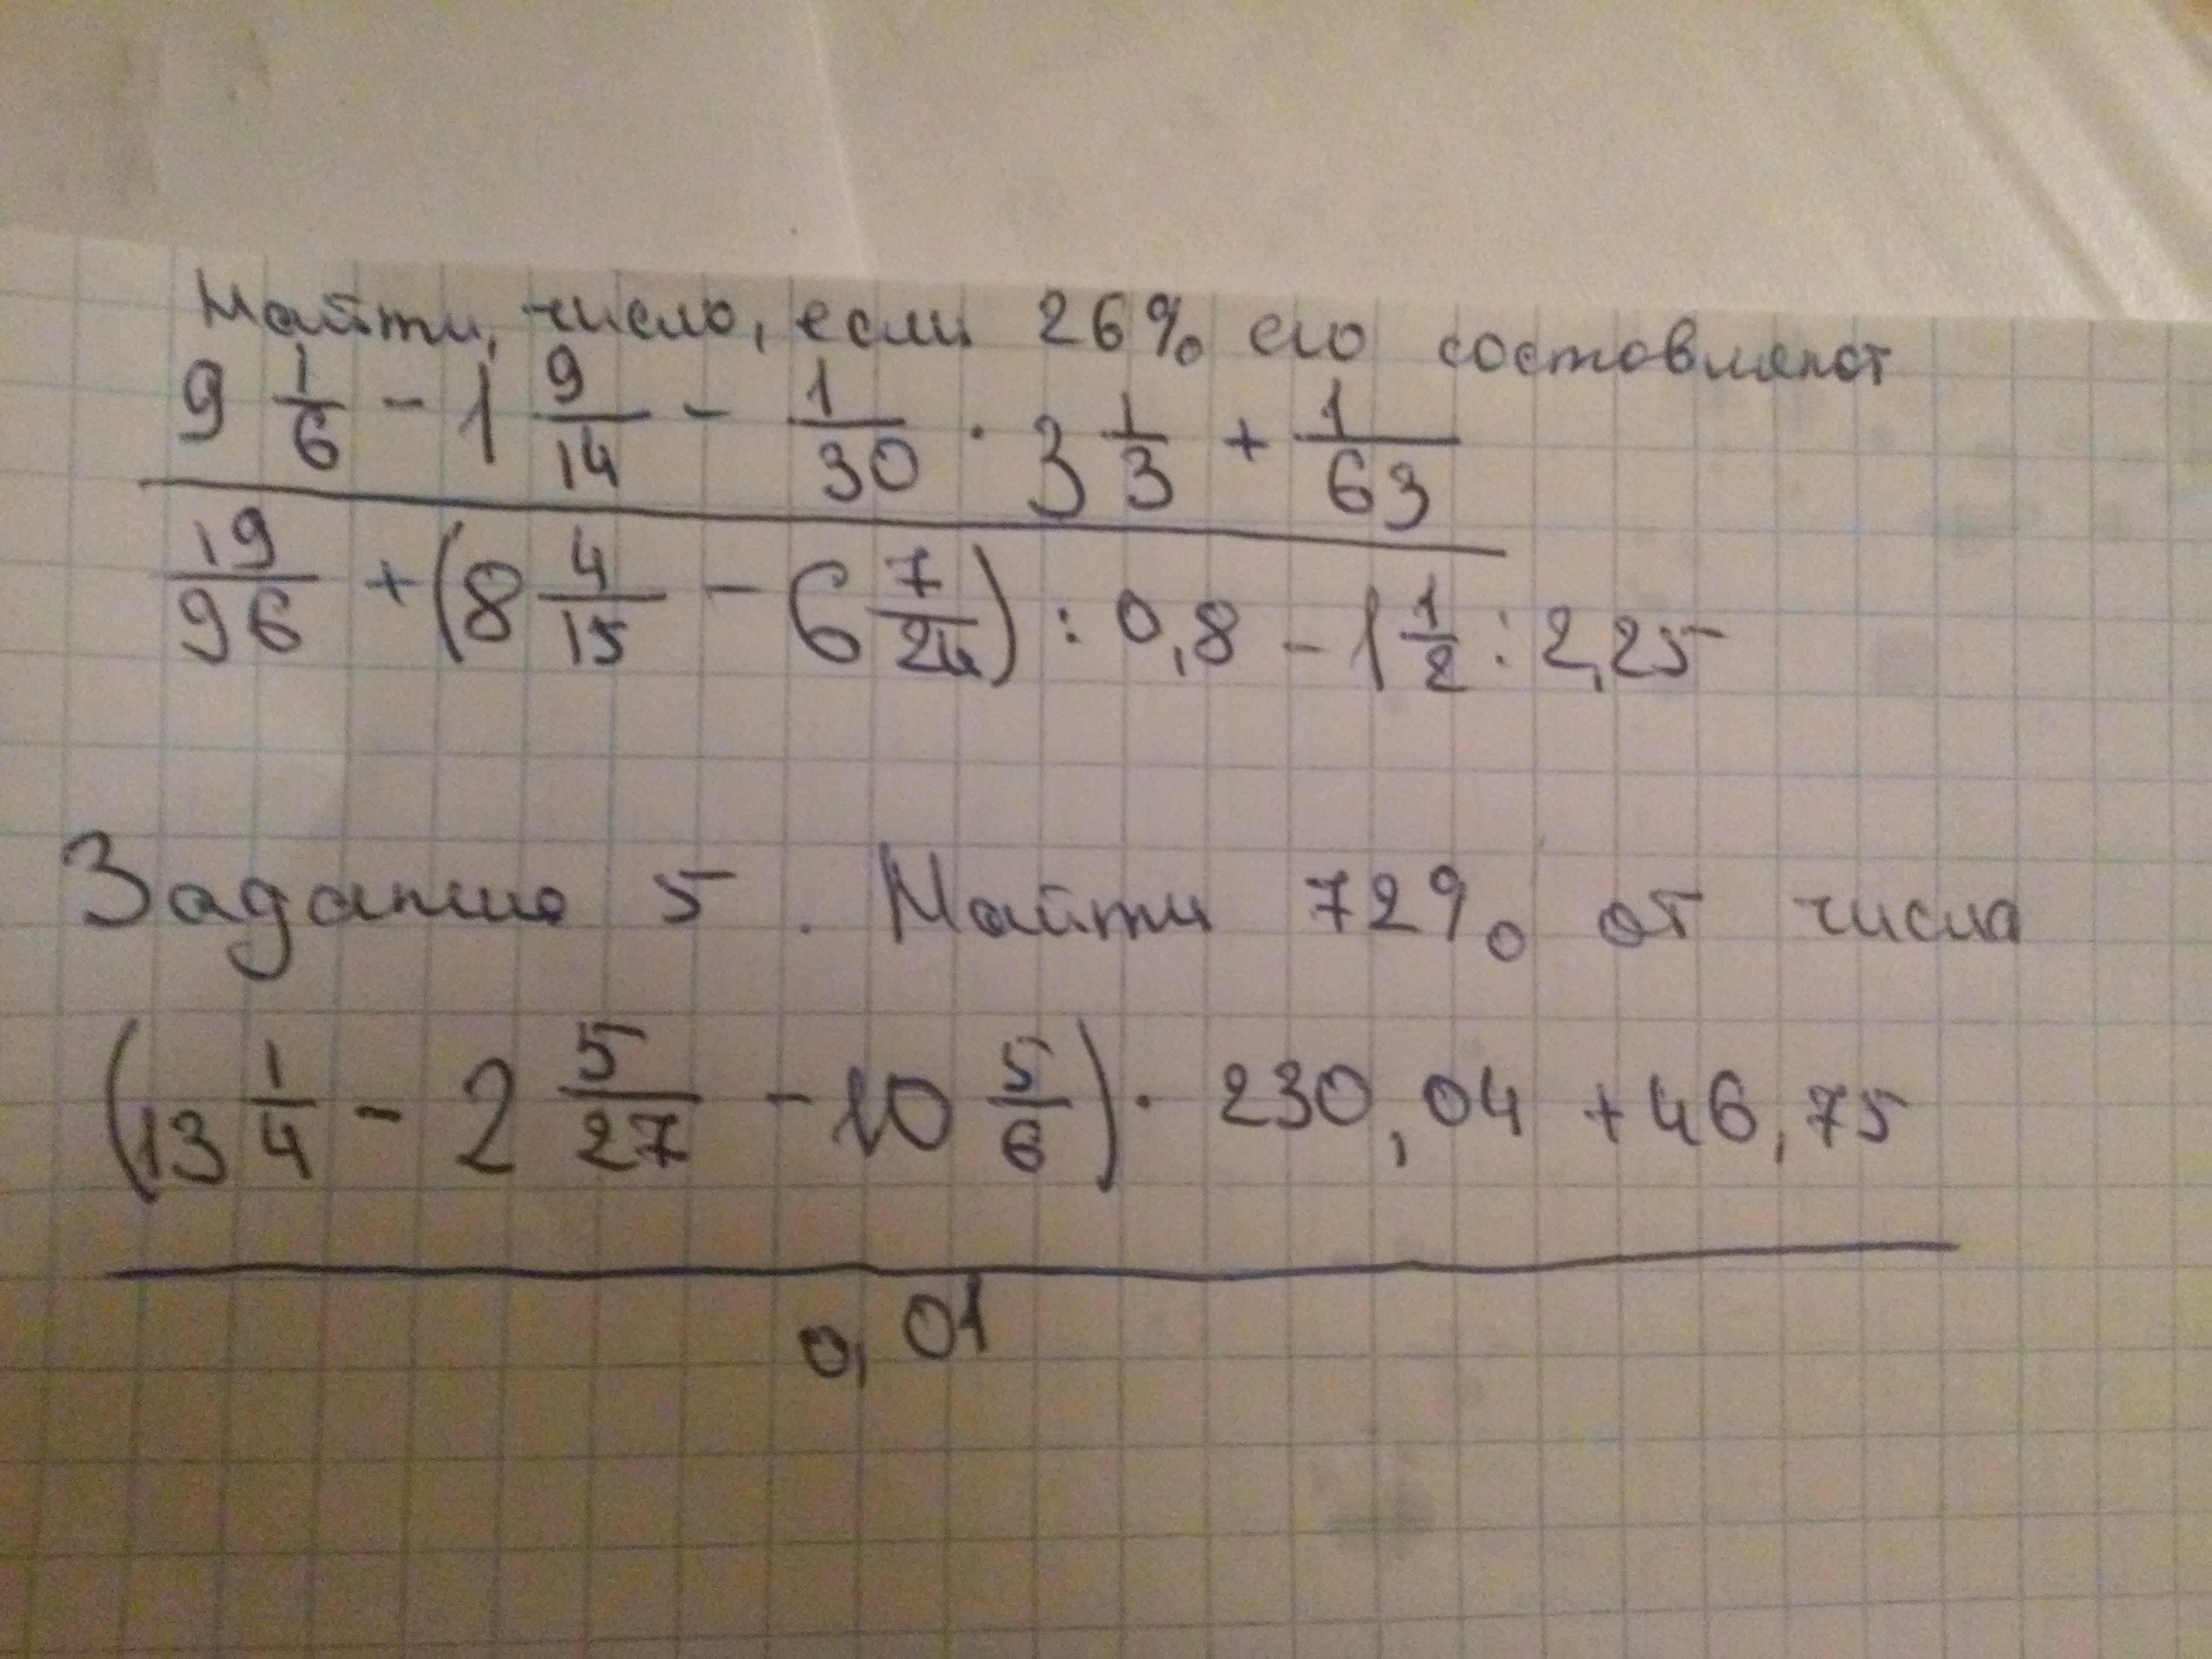 Найти, число, если 26% его составляют
9 1/6 - 1 9/14 - 1/30 · 3 1/3 + 1/63
19/96 + (8 4/15 - 6 7/24) : 0,8 - 1 1/2 : 2,25
Задание 5. Найти 72% от числа
(13 1/4 - 2 5/27 - 10 5/6) · 230,04 + 46,75
0,01